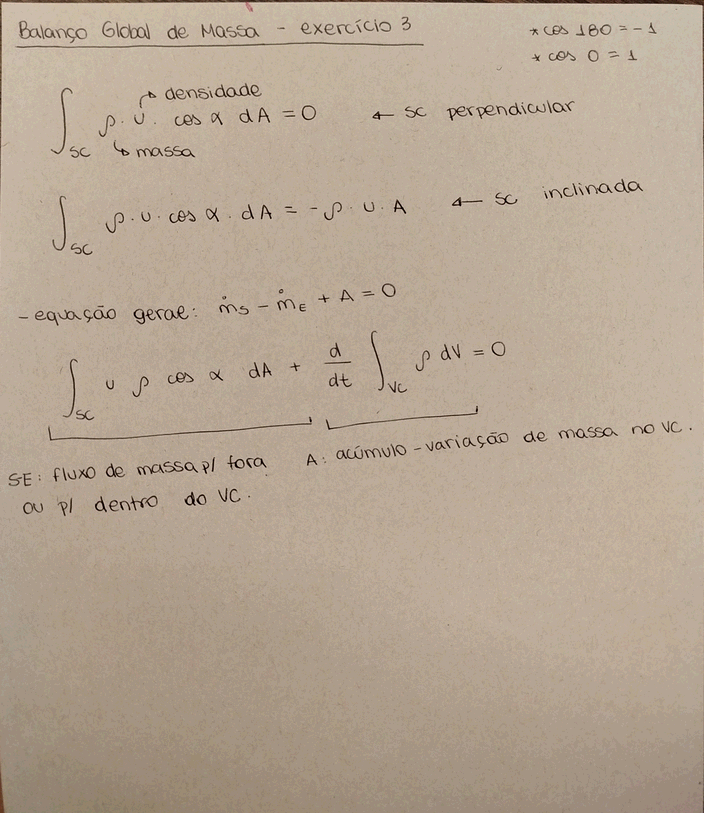 Balanço Global de Massa - exercício 3
* cos 180 = -1
* cos 0 = 1
↱ densidade
∫SC ρ. υ. cos α dA = 0 ← SC perpendicular
↳ massa
∫SC ρ. υ. cos α. dA = - ρ. υ. A ← SC inclinada
- equação gerae: ṁS - ṁE + A = 0
∫SC υ ρ cos α dA + d/dt ∫VC ρ dV = 0
SE: fluxo de massa p/ fora
ou p/ dentro do VC.
A: acúmulo - variação de massa no VC.